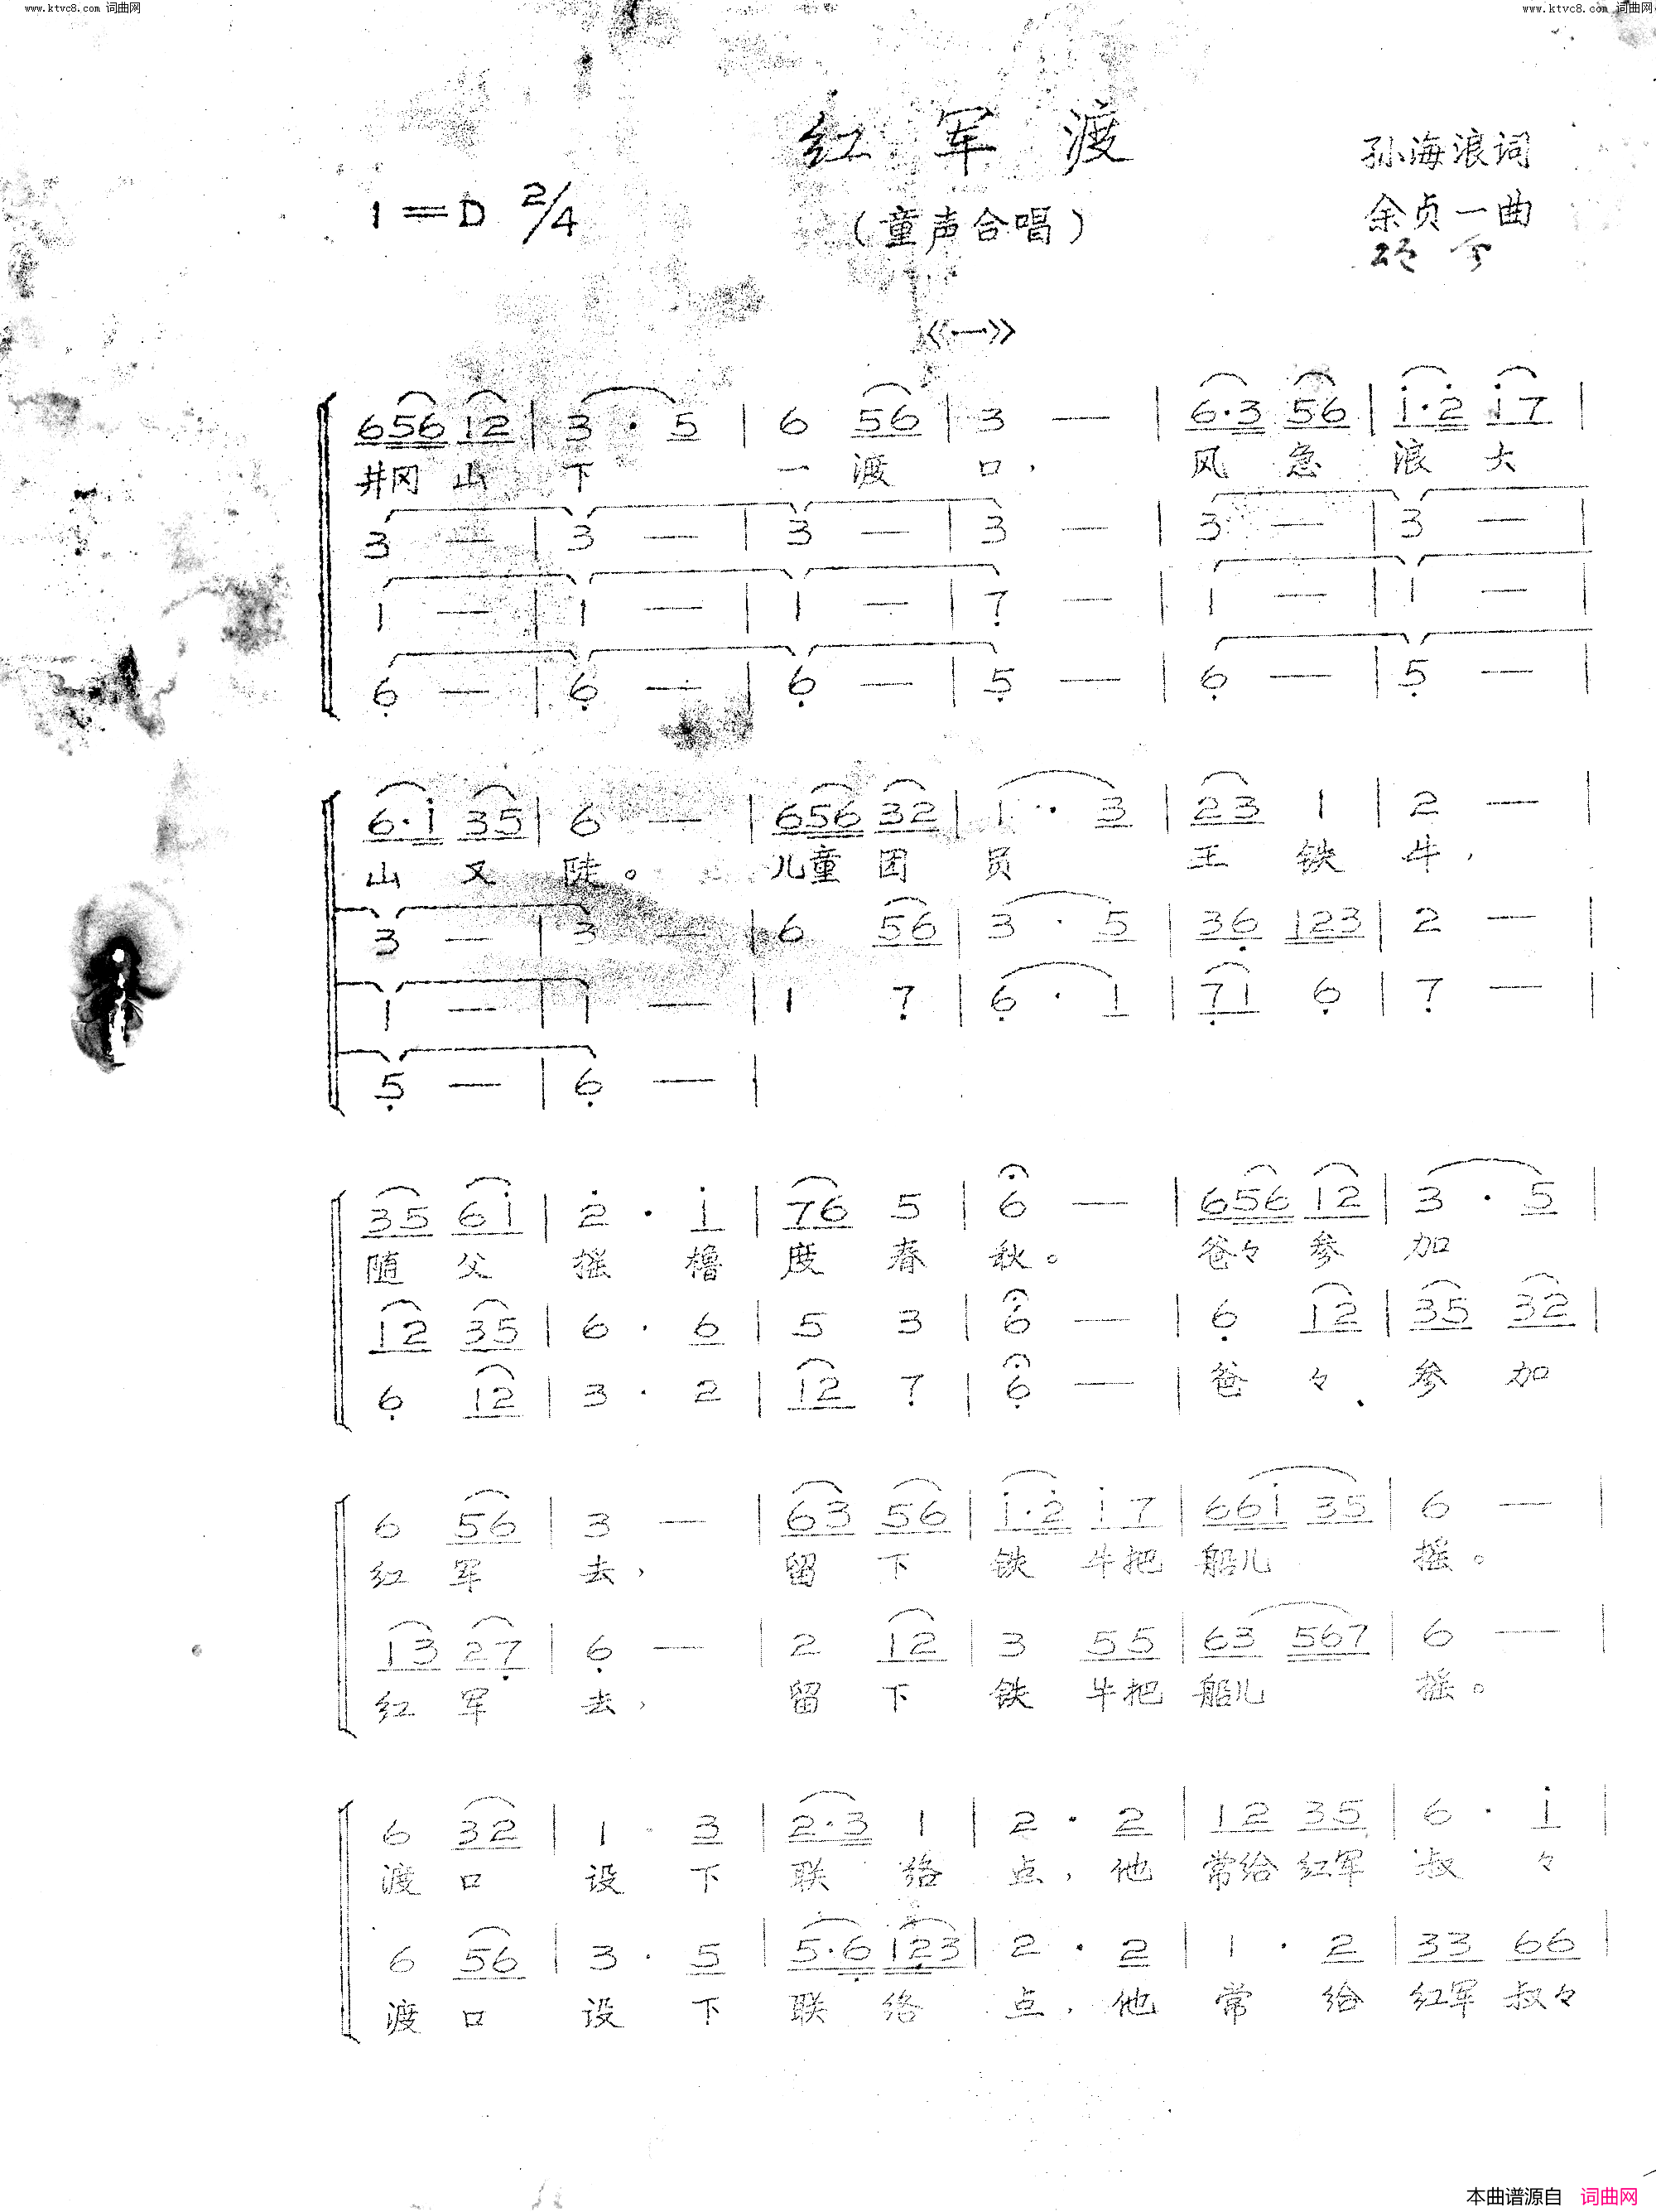 www.ktvc8.com 词曲网
www.ktvc8.com 词曲网
红军渡
孙海浪词
1=D 2/4
(童声合唱)
余贞一曲
《一》
656 12 | 3 · 5 | 6 56 | 3 — | 6·3 56 | i·2̇ i7 |
井冈山下 一渡口, 风急浪大
3 — | 3 — | 3 — | 3 — | 3 — | 3 — |
1 — | 1 — | 1 — | 7̣ — | 1 — | 1 — |
6̣ — | 6̣ — | 6̣ — | 5̣ — | 6̣ — | 5̣ — |
6·i 35 | 6 — | 656 32 | 1 · 3 | 23 1 | 2 — |
山又陡。 儿童团员 王铁牛,
3 — | 3 — | 6 56 | 3 · 5 | 36̣ 123 | 2 — |
1 — | 1 — | 1 7̣ | 6̣ · 1 | 7̣1 6̣ | 7̣ — |
5̣ — | 6̣ — |
35 6i | 2̇ · i | 76 5 | 6 — | 656 12 | 3 · 5 |
随父摇橹度春秋。 爸々参加
12 35 | 6 · 6 | 5 3 | 6 — | 6̣ 12 | 35 32 |
6̣ 12 | 3 · 2 | 12 7̣ | 6̣ — | 爸々参加
6 56 | 3 — | 63 56 | i·2̇ i7 | 66i 35 | 6 — |
红军去, 留下铁牛把船儿摇。
13 27̣ | 6̣ — | 2 12 | 3 55 | 63 567 | 6 — |
红军去, 留下铁牛把船儿摇。
6 32 | 1 · 3 | 2·3 1 | 2 · 2 | 12 35 | 6 · i |
渡口设下联络点,他常给红军叔々
6 56 | 3 · 5 | 5·6̣ 12̣3 | 2 · 2 | 1 · 2 | 33 66 |
渡口设下联络点,他常给红军叔々
本曲谱源自 词曲网